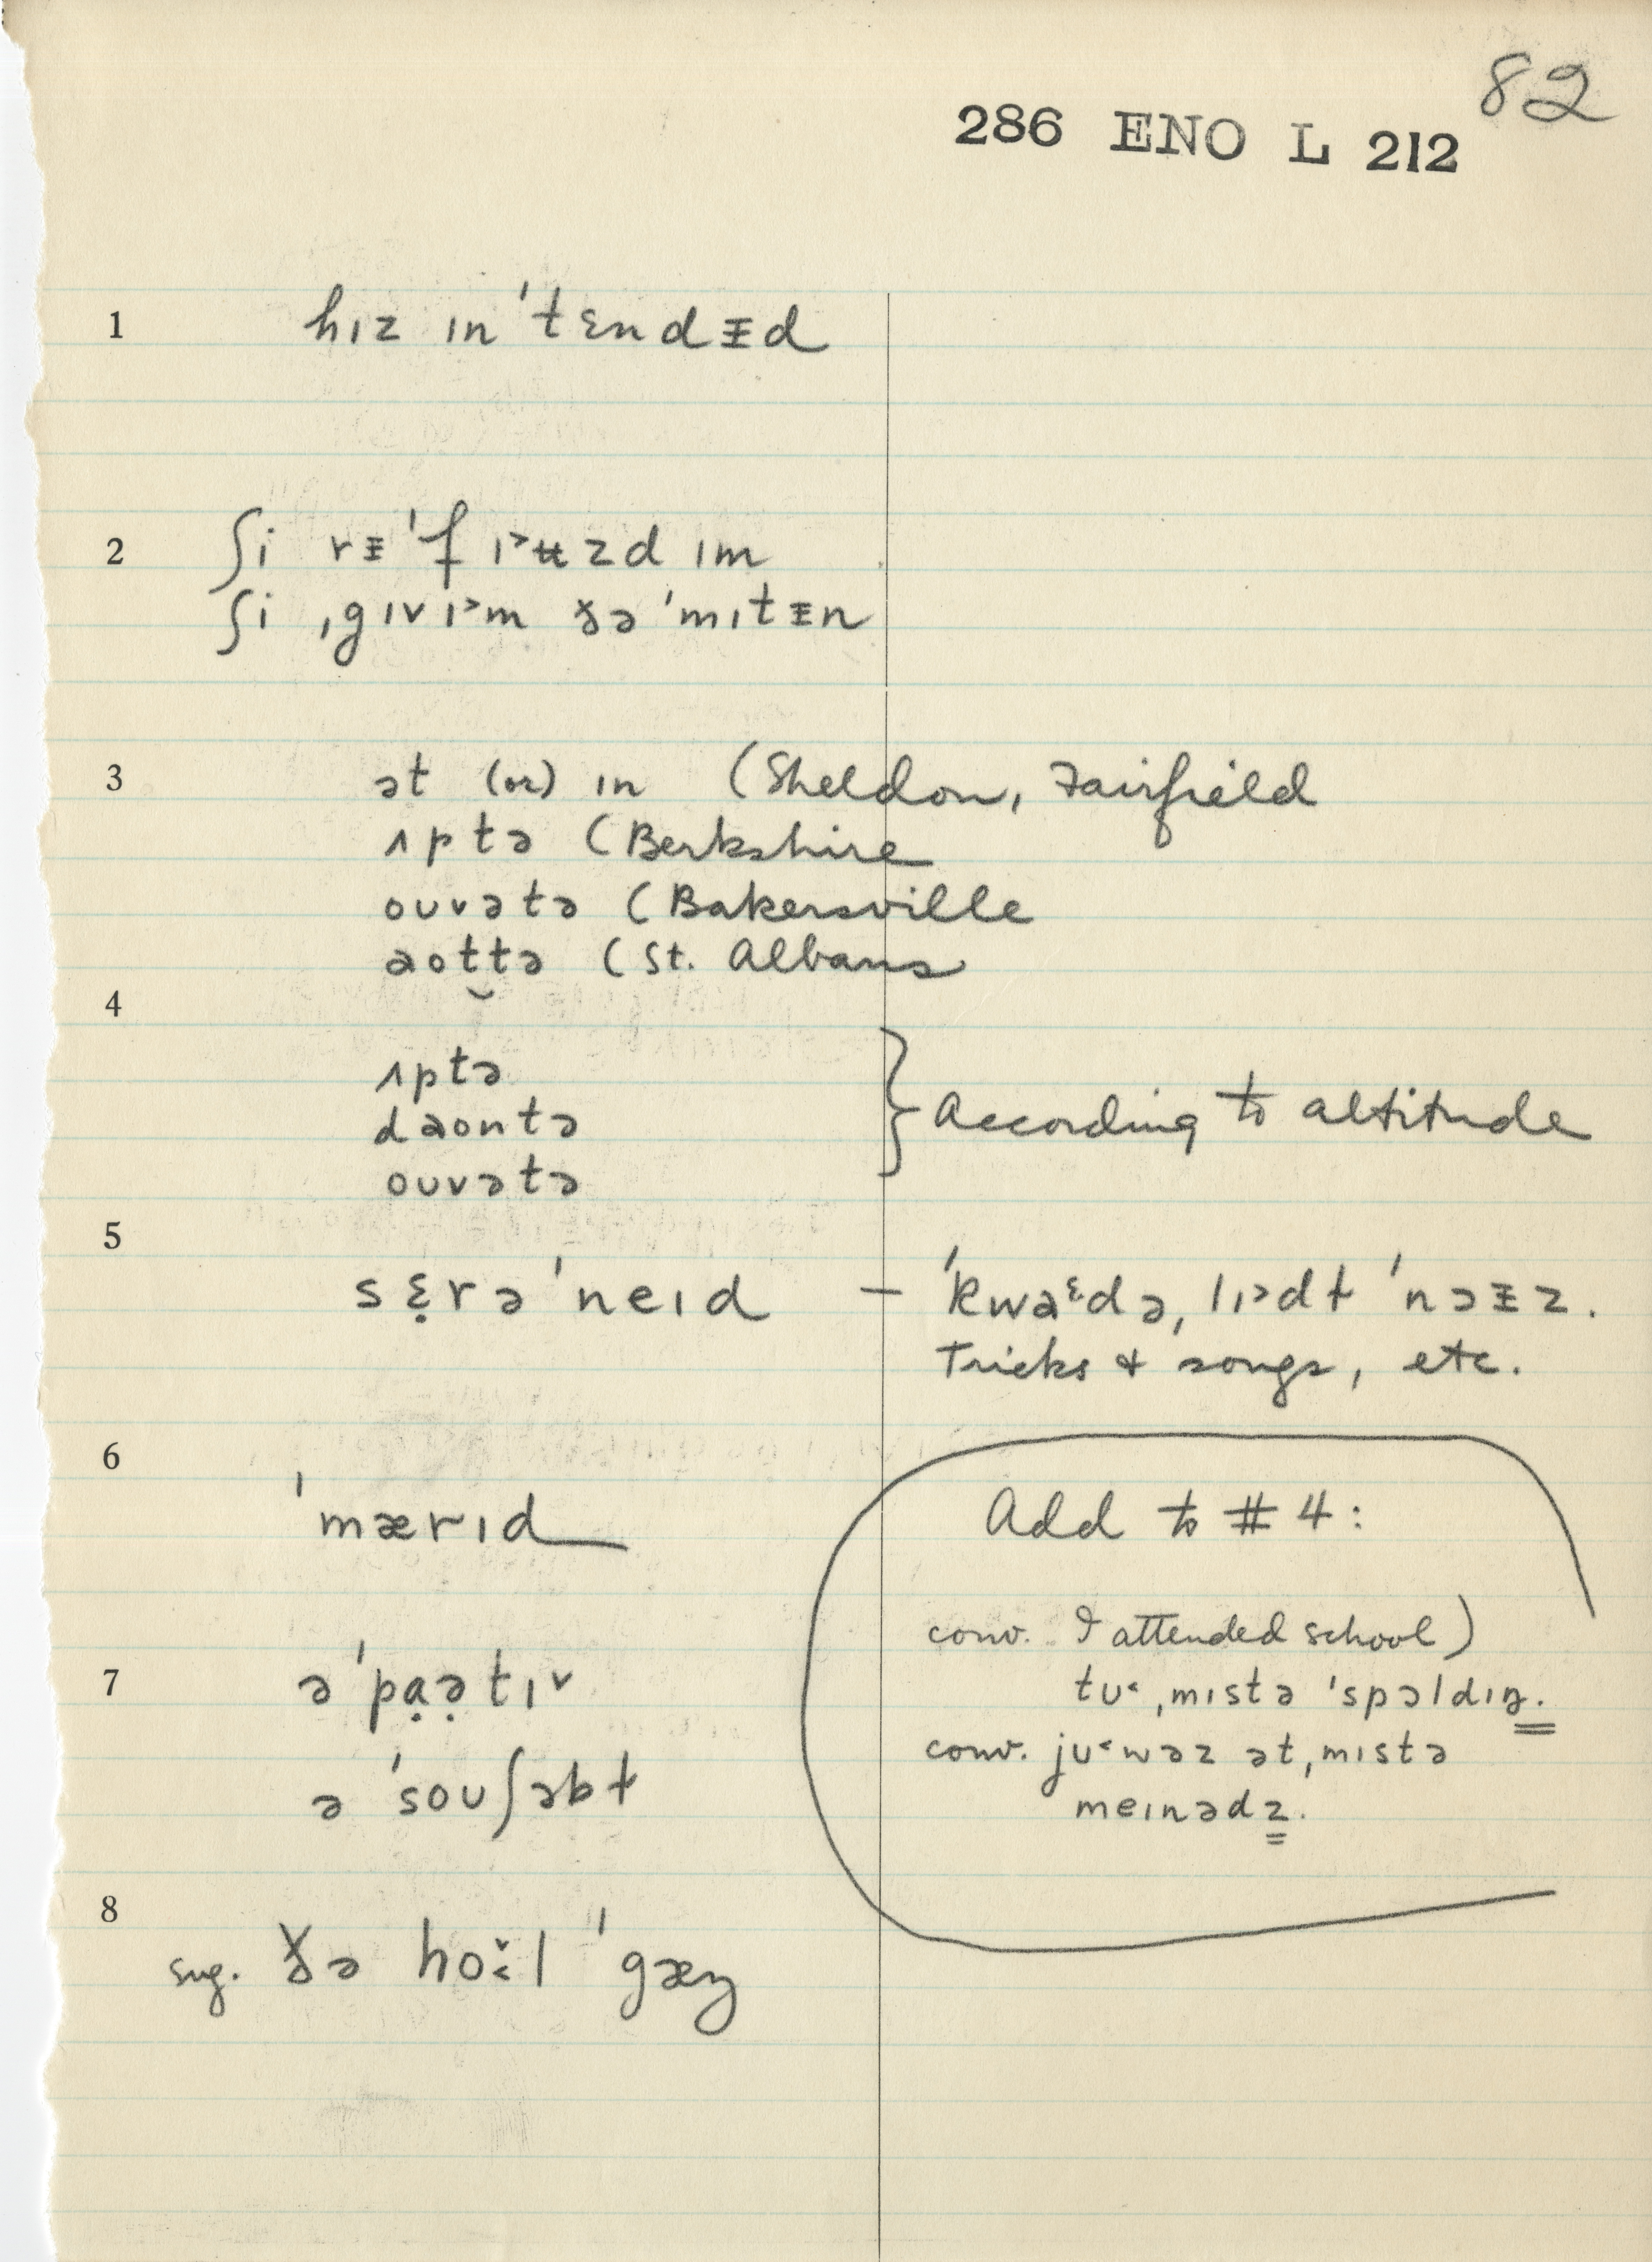 82
286 ENO L 212
1 hɪz ɪnˈtɛndᵻd
2 ʃi rᵻˈfɪ˃ʉzd ɪm
ʃi ˌgɪvɪ˃m ðə ˈmɪtᵻn
3 ət (or) ɪn (Sheldon, Fairfield
ʌptə (Berkshire
oʊvətə (Bakersville
aot̬tə (St. Albans
4
ʌptə
daontə
oʊvətə
} According to altitude
5 sɛ̣rəˈneɪd – ˈkwaᵋdə, lɪ˃dɫ ˈnɔᵻz.
Tricks & songs, etc.
6 ˈmærɪd
Add to #4:
conv. I attended school)
tʊ˂ ˌmɪstə ˈspɔldɪŋ.
conv. jʊ˂ wəz ət ˌmɪstə
meɪnədz.
7 əˈpạə̣tɪv
ə ˈsoʊʃəbɫ
8 sug. ðə hoˑl ˈgæŋ